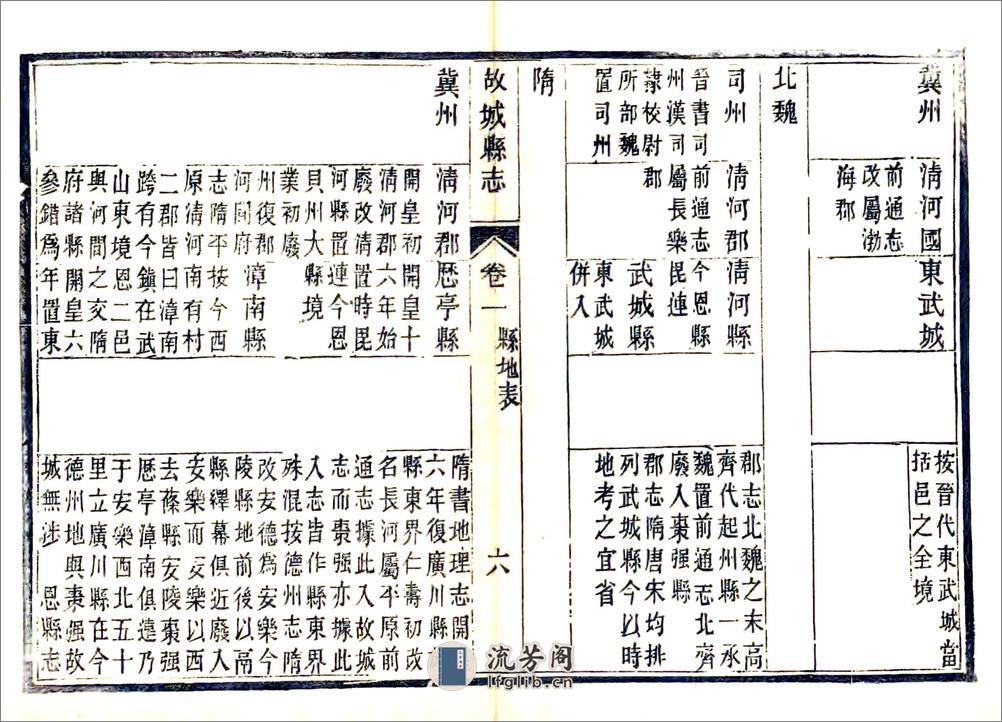 冀州
清河國
前通志
改屬渤
海郡
東武城
按晉代東武城當
括邑之全境
北魏
司州
晉書司
州漢司
隸校尉
所部魏
置司州
清河郡
前通志
屬長樂
郡
清河縣
今恩縣
毘連
武城縣
東武城
併入
郡志北魏之末高
齊代起州縣一承
魏置前通志北齊
廢入棗强縣
郡志隋唐宋均排
列武城縣今以時
地考之宜省
隋
故城縣志 卷一 縣地表 六
冀州
清河郡
開皇初
清河郡
廢改清
河縣置
貝州大
業初廢
州復郡
河間府
志隋平
原清河
二郡皆
跨有今
山東境
與河間
府諸縣
參錯爲
歷亭縣
開皇十
六年始
置時毘
連今恩
縣境
漳南縣
按今西
南有村
曰漳南
鎮在武
恩二邑
之交隋
開皇六
年置東
隋書地理志開
六年復廣川縣
縣東界仁壽初改
名長河屬平原前
通志據此入故城
志而棗强亦據此
入志皆作縣東界
殊混按德州志隋
改安德爲安樂今
陵縣地前後以高
縣繹幕俱近廢入
安樂而安樂以西
去蓨縣安陵棗强
歷亭漳南俱遠乃
于安樂西北五十
里立廣川縣在今
德州地與棗强故
城無涉 恩縣志
流芳阁
lfglib.cn